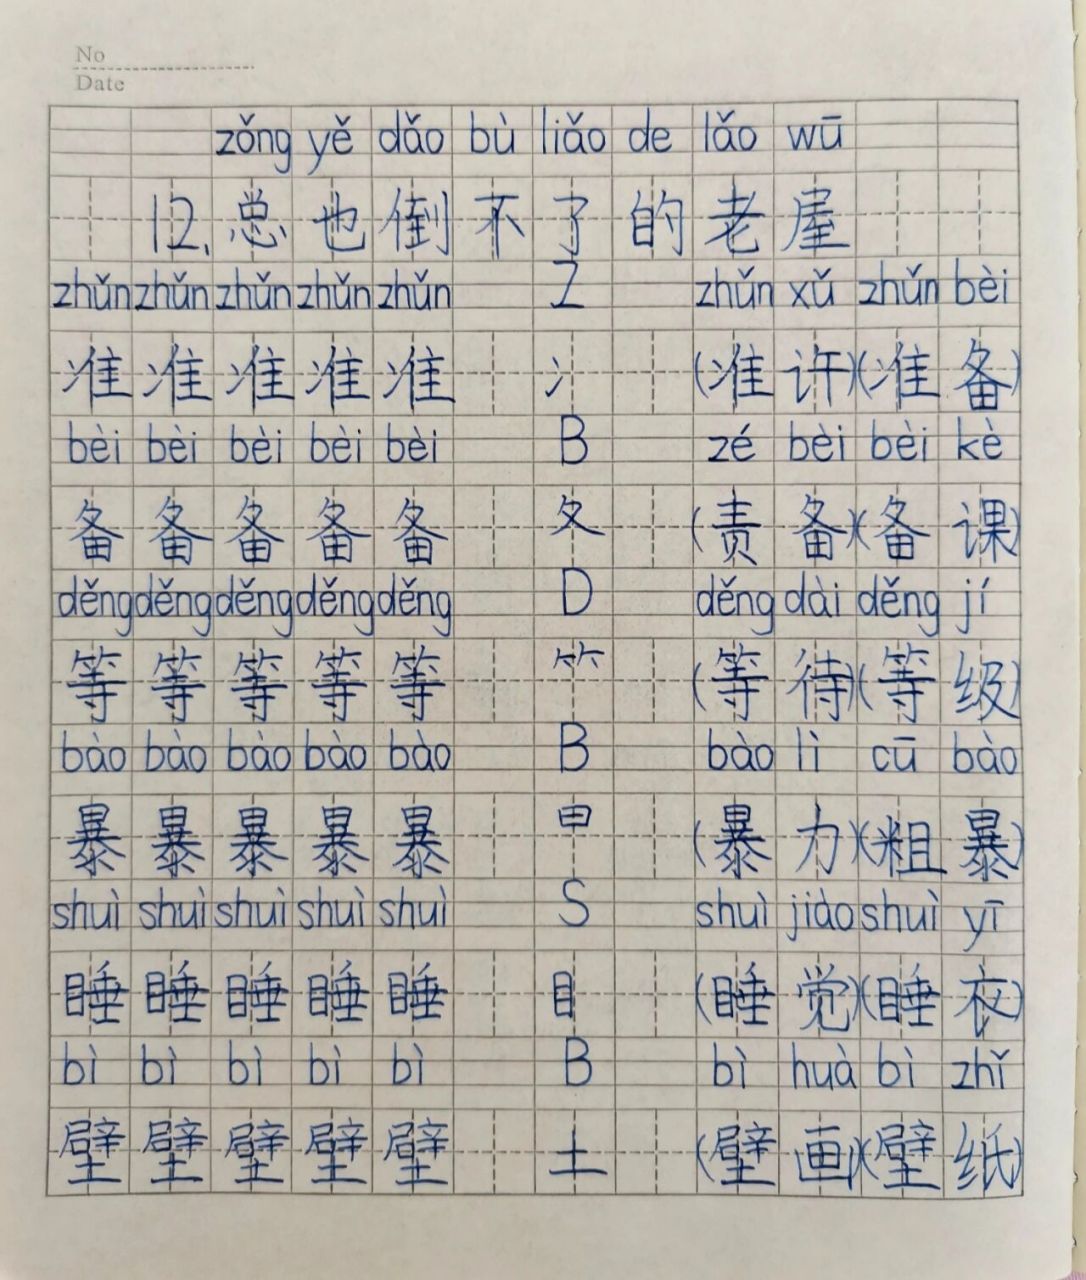 No
Date
zǒng yě dǎo bù liǎo de lǎo wū
12. 总也倒不了的老屋
zhǔn zhǔn zhǔn zhǔn zhǔn Z zhǔn xǔ zhǔn bèi
准 准 准 准 准 冫 (准许)(准备)
bèi bèi bèi bèi bèi B zé bèi bèi kè
备 备 备 备 备 夂 (责备)(备课)
děng děng děng děng děng D děng dài děng jí
等 等 等 等 等 ⺮ (等待)(等级)
bào bào bào bào bào B bào lì cū bào
暴 暴 暴 暴 暴 日 (暴力)(粗暴)
shuì shuì shuì shuì shuì S shuì jiào shuì yī
睡 睡 睡 睡 睡 目 (睡觉)(睡衣)
bì bì bì bì bì B bì huà bì zhǐ
壁 壁 壁 壁 壁 土 (壁画)(壁纸)